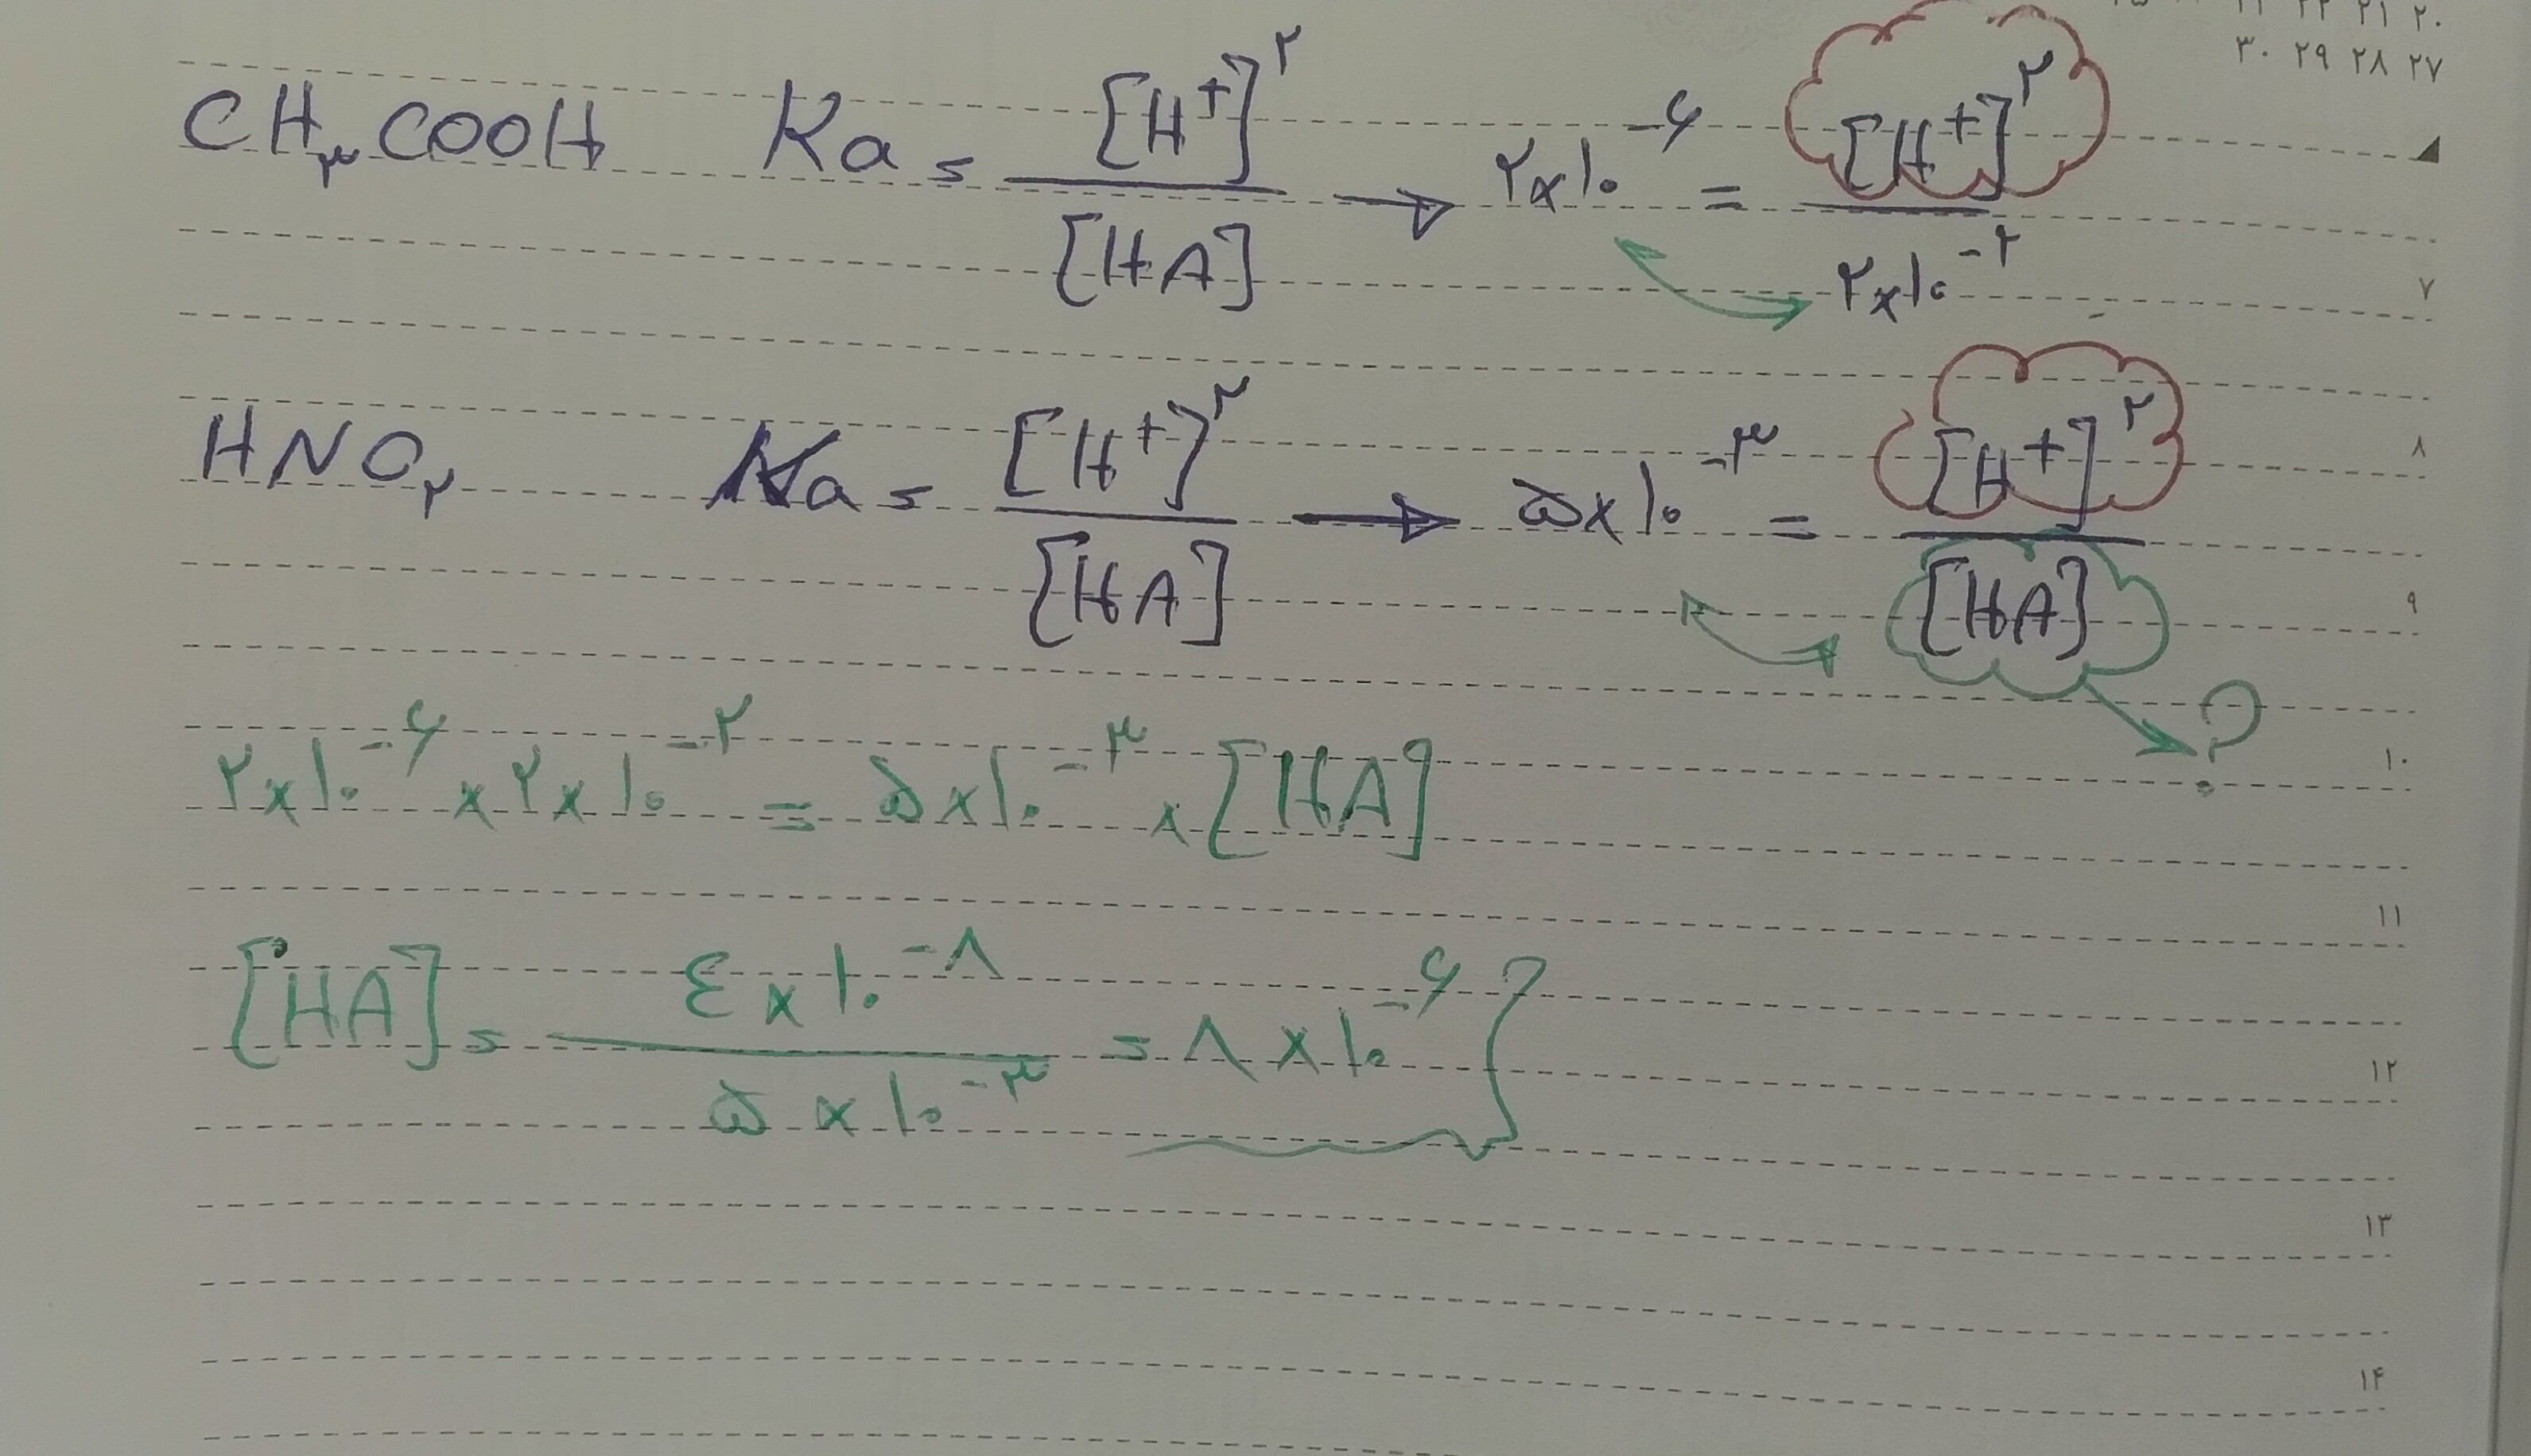 ۲۰ ۲۱ ۲۲
۲۷ ۲۸ ۲۹ ۳۰
CH₃COOH Ka = [H⁺]^۲ / [HA] → ۲×۱۰^-۶ = [H⁺]^۲ / ۲×۱۰^-۲
۷
HNO₂ Ka = [H⁺]^۲ / [HA] → ۵×۱۰^-۳ = [H⁺]^۲ / [HA] → ?
۸
۹
۲×۱۰^-۶ × ۲×۱۰^-۲ = ۵×۱۰^-۳ × [HA]
۱۰
۱۱
[HA] = ٤×۱۰^-۸ / ۵×۱۰^-۳ = ۸×۱۰^-۶
۱۲
۱۳
۱۴